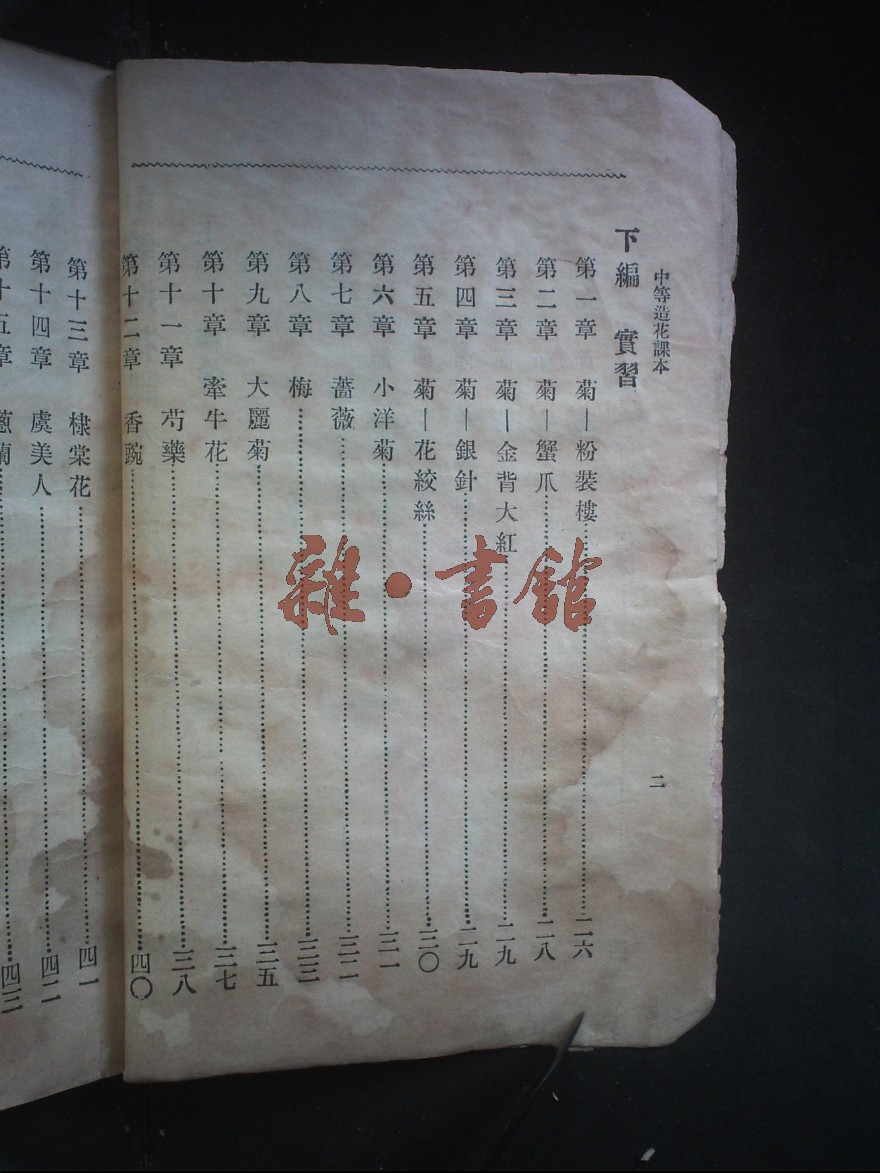 中等造花課本
二
下編 實習
第一章 菊—粉裝樓……二六
第二章 菊—蟹爪……二八
第三章 菊—金背大紅……二九
第四章 菊—銀針……二九
第五章 菊—花絞絲……三〇
第六章 小洋菊……三一
第七章 薔薇……三二
第八章 梅……三三
第九章 大麗菊……三五
第十章 牽牛花……三七
第十一章 芍藥……三八
第十二章 香豌……四〇
第十三章 棣棠花……四一
第十四章 虞美人……四二
第十五章 蔥蘭……四三
雜·書館